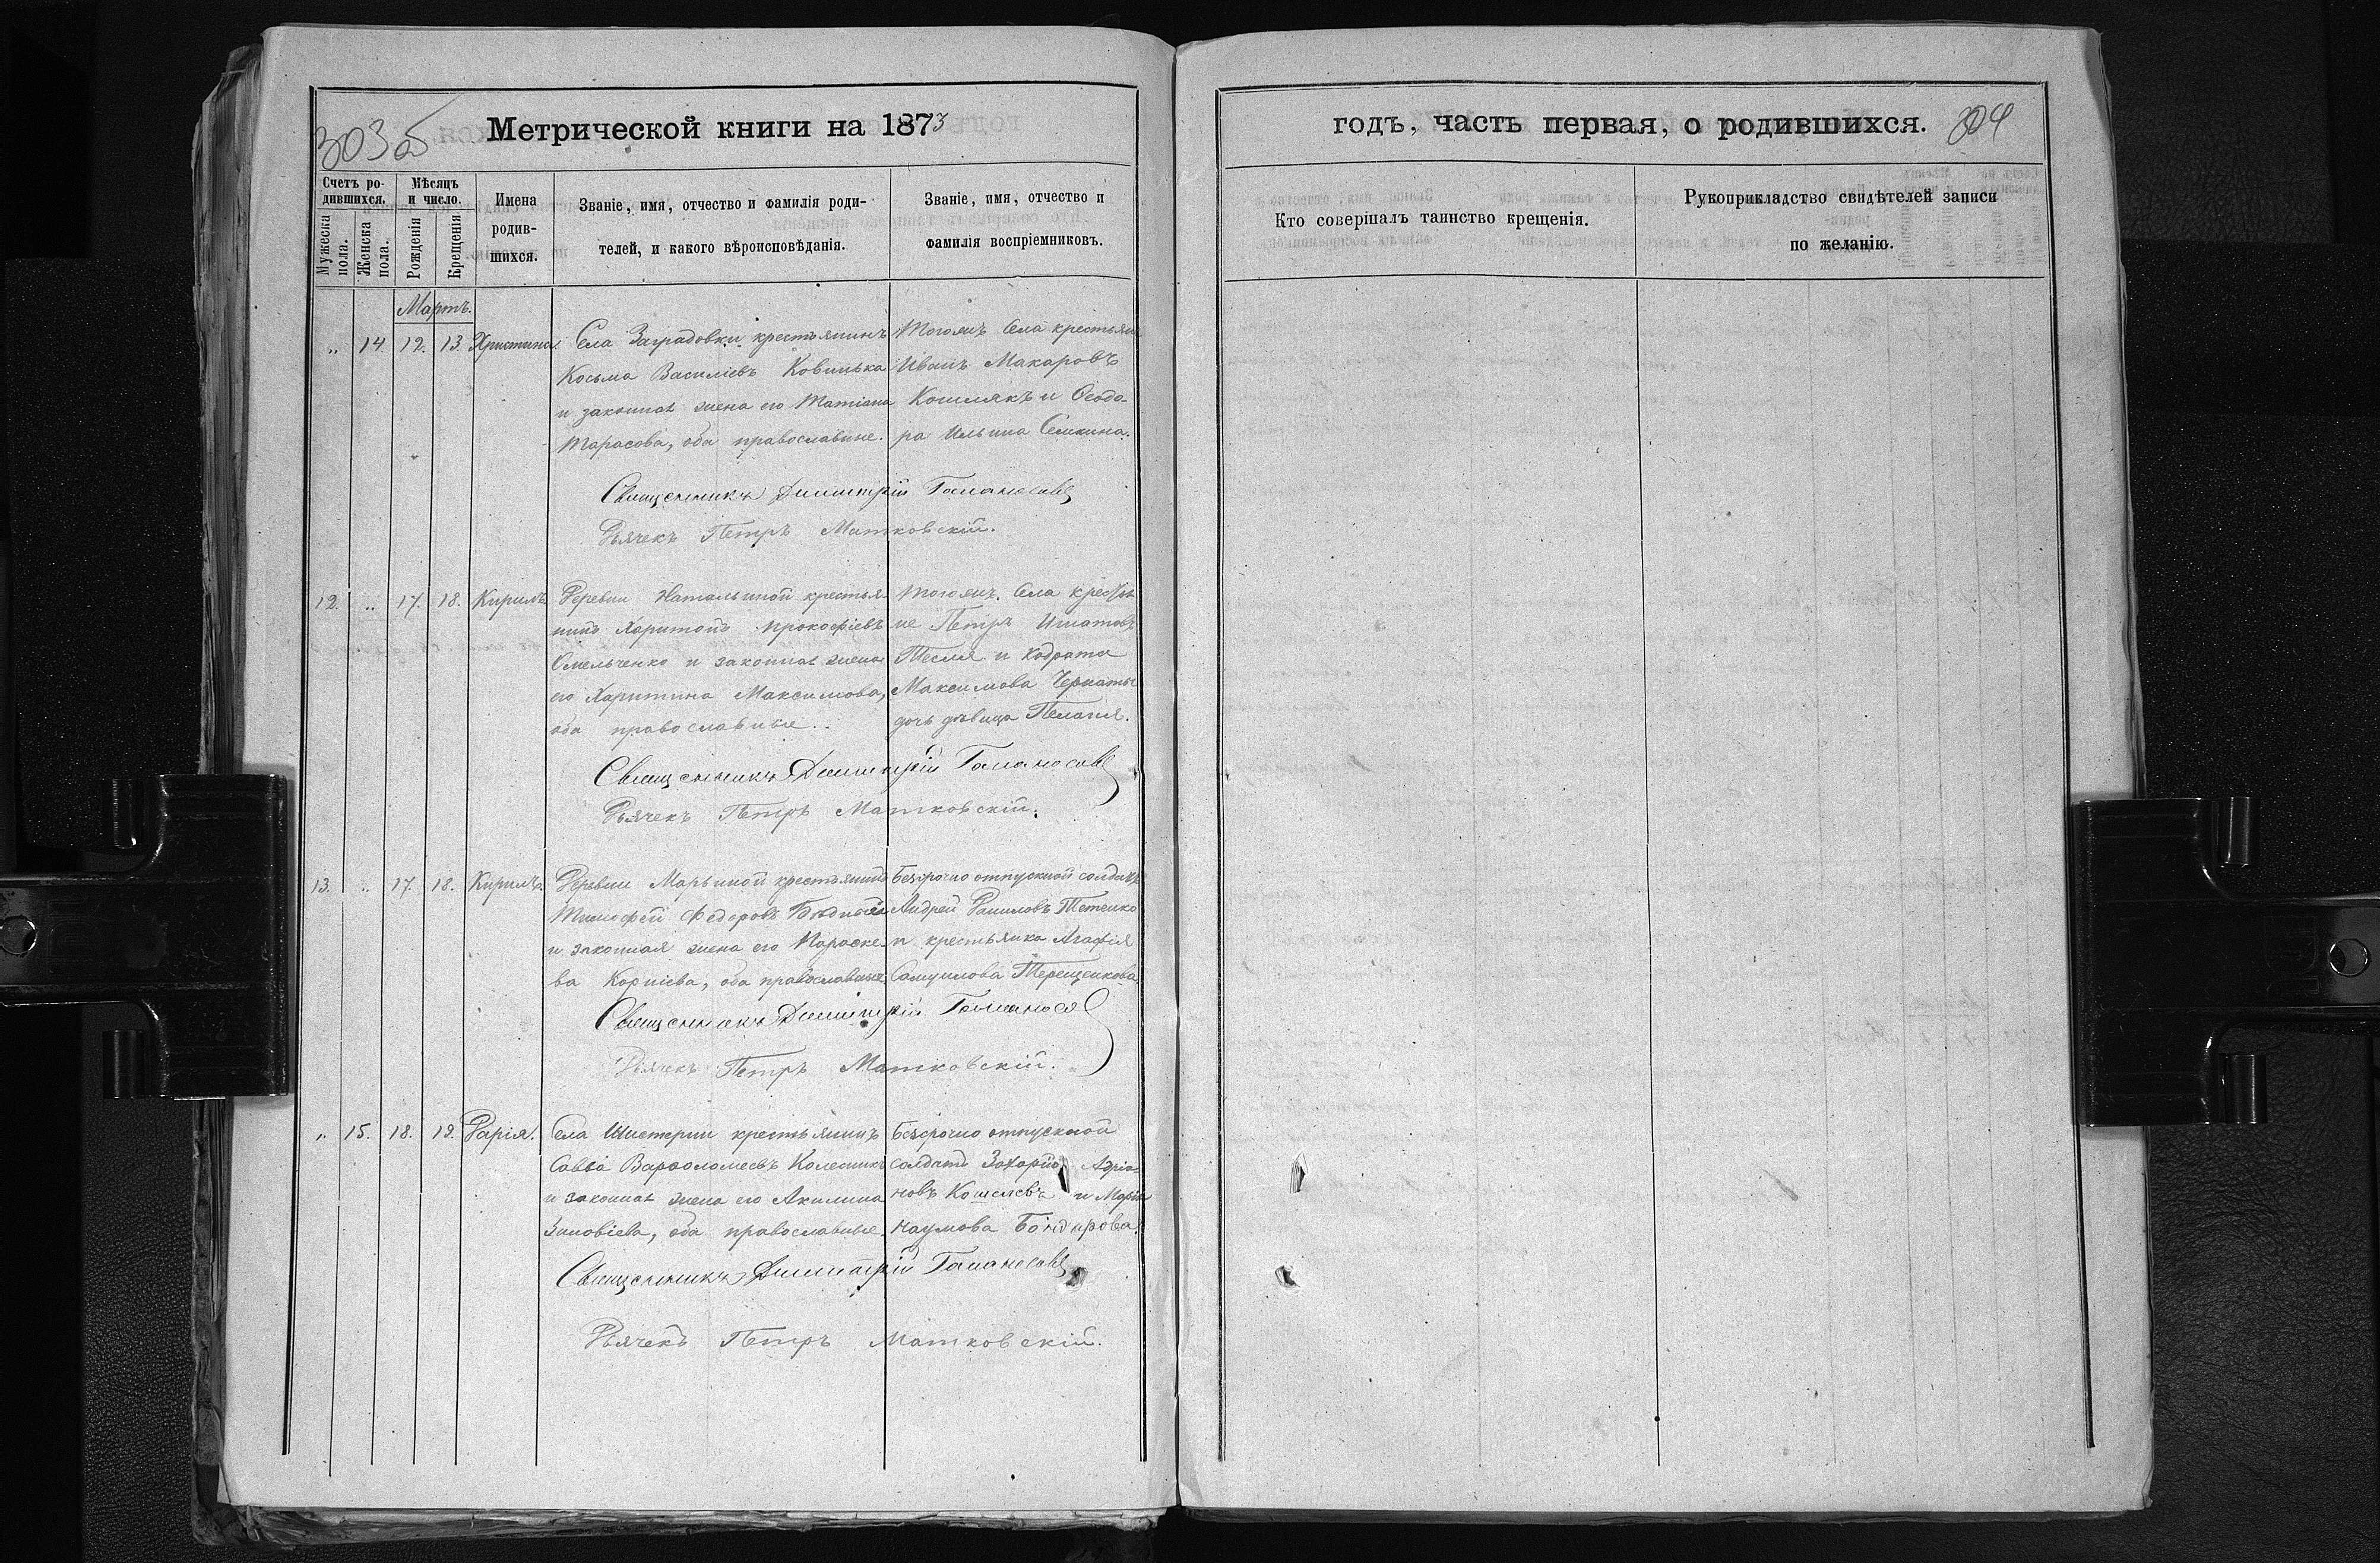 303 об
Метрической книги на 1873
Счетъ ро-
дившихся.
Мужеска
пола.
Женска
пола.
Мѣсяцъ
и число.
Рожденія
Крещенія
Имена
родив-
шихся.
Званіе, имя, отчество и фамилія роди-
телей, и какого вѣроисповѣданія.
Званіе, имя, отчество и
фамилія воспріемниковъ.
Мартъ.
„ 14 12. 13. Христина.
Села Заградовки крестьянинъ
Косьма Василіевъ Ковинька
и законная жена его Татіана
Тарасова, оба православные.
Тогожъ села крестьяне
Иванъ Макаровъ
Кошлякъ и Ѳеодо-
ра Ильина Семкина.
Священникъ Димитрій
Дьячекъ Петръ Матковскій.
12. „ 17. 18. Кирилъ
Деревни Натальиной крестья-
нинъ Харитонъ Прокофіевъ
Омельченко и законная жена
его Харитина Максимова,
оба православные.
Тогожъ села крестья
не Петръ Игнатовъ
Тесля и Кодрата
Максимова
дочь дѣвица Пелагія.
Священникъ Димитрій
Дьячекъ Петръ Матковскій.
13. „ 17. 18. Кирилъ.
Деревни Марьиной крестьянинъ
Тимофей Федоровъ Бѣдный
и законная жена его Параске-
ва Корніева, оба православные.
Безсрочно отпускной солдатъ
Андрей Даниловъ Тетенко
и крестьянка Агафія
Самуилова Терещенкова.
Священникъ Димитрій
Дьячекъ Петръ Матковскій.
„ 15. 18. 19. Дарія.
Села Шистерни крестьянинъ
Савва Варѳоломеевъ Колесникъ
и законная жена его Акилина
Зиновіева, оба православные.
Безсрочно отпускной
солдатъ Захарій Адріа-
новъ Кошелевъ и Марія
Наумова Бондарова.
Священникъ Димитрій
Дьячекъ Петръ Матковскій.
годъ, часть первая, о родившихся.
304
Кто совершалъ таинство крещенія.
Рукоприкладство свидѣтелей записи
по желанію.